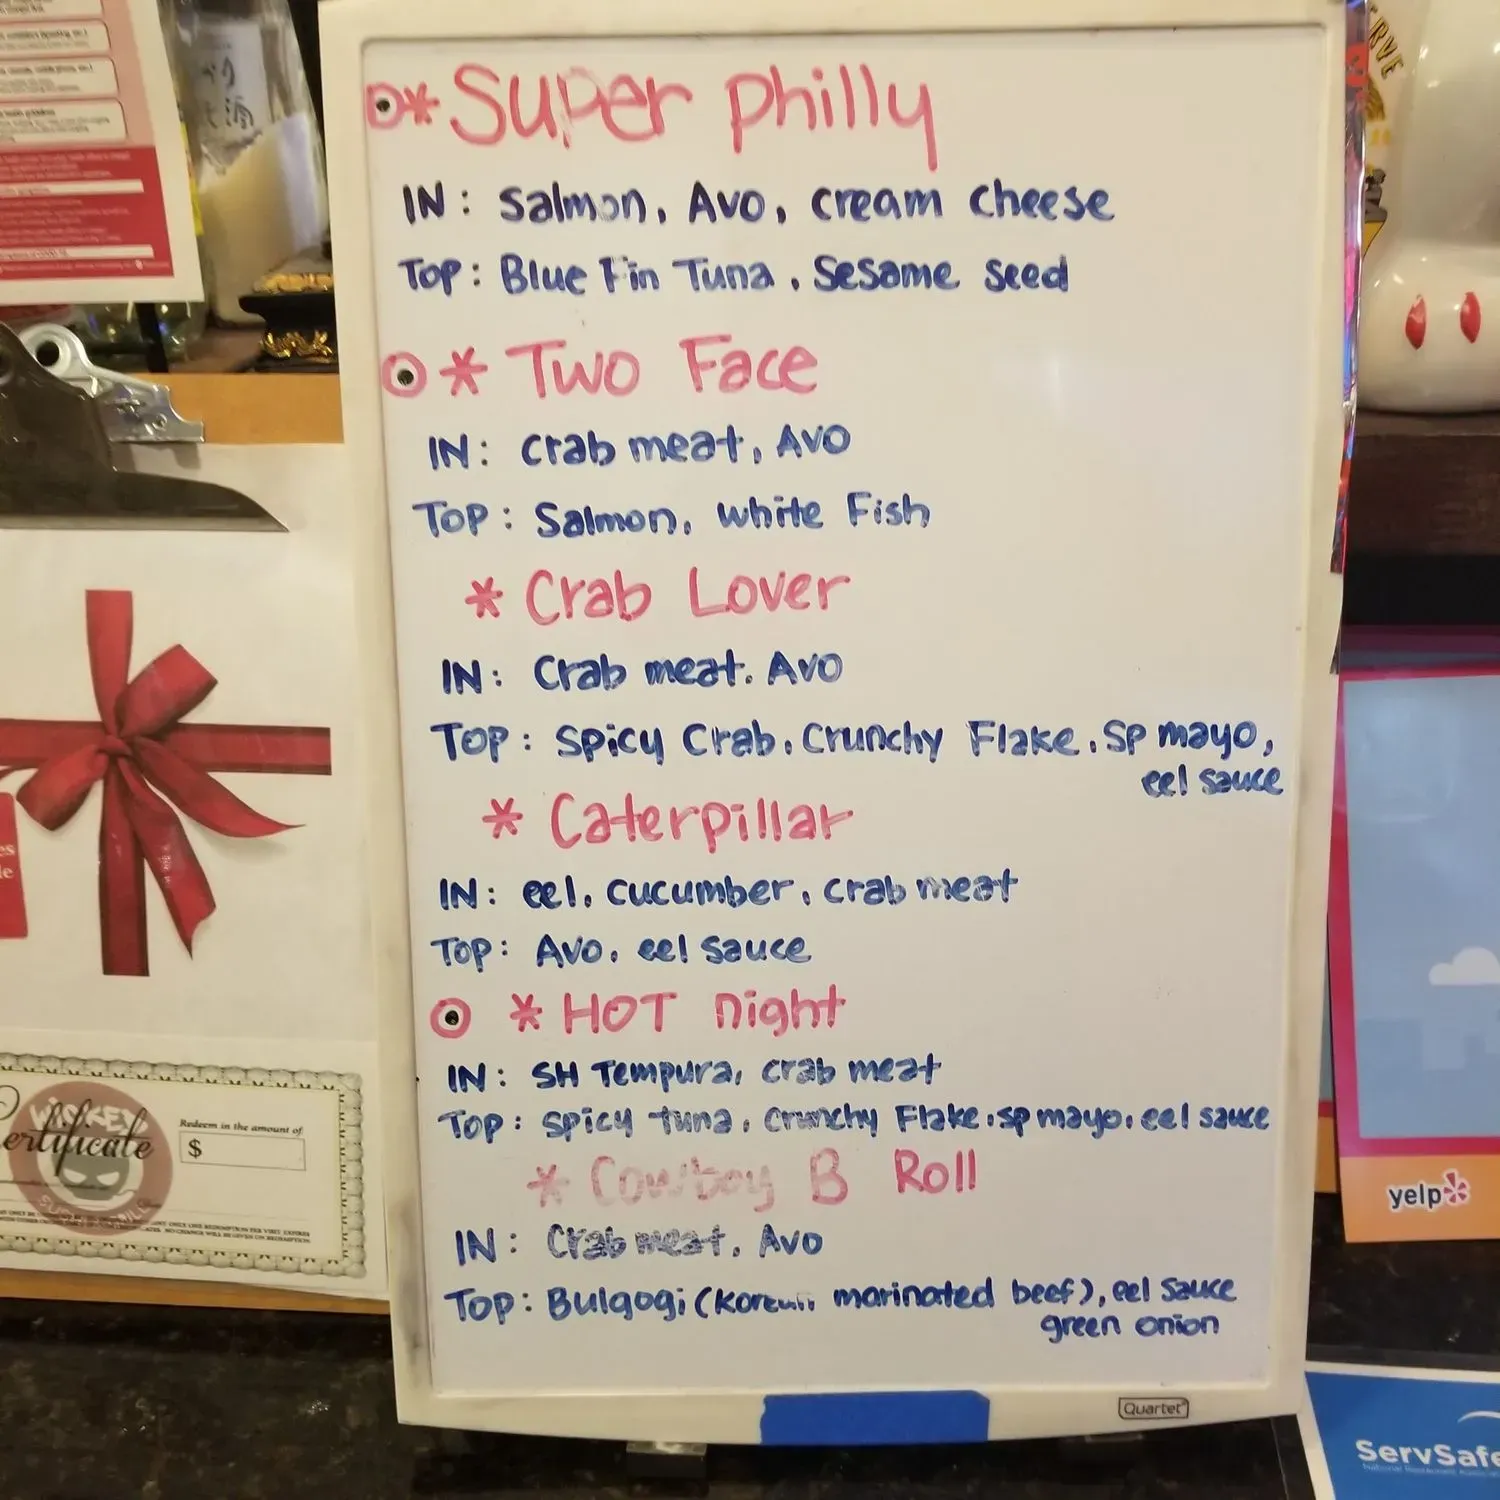 * Super Philly
IN: Salmon, Avo, cream cheese
Top: Blue Fin Tuna, Sesame Seed
* Two Face
IN: crab meat, Avo
Top: Salmon, white Fish
* Crab Lover
IN: Crab meat. Avo
Top: Spicy Crab, Crunchy Flake, Sp mayo,
eel sauce
* Caterpillar
IN: eel, cucumber, crab meat
Top: Avo, eel sauce
* HOT night
IN: SH Tempura, crab meat
Top: Spicy tuna, Crunchy Flake, sp mayo, eel sauce
* Cowboy B Roll
IN: Crab meat, Avo
Top: Bulgogi (Korean marinated beef), eel sauce
green onion
Quartet
Certificate
Redeem in the amount of
$
yelp
ServSafe